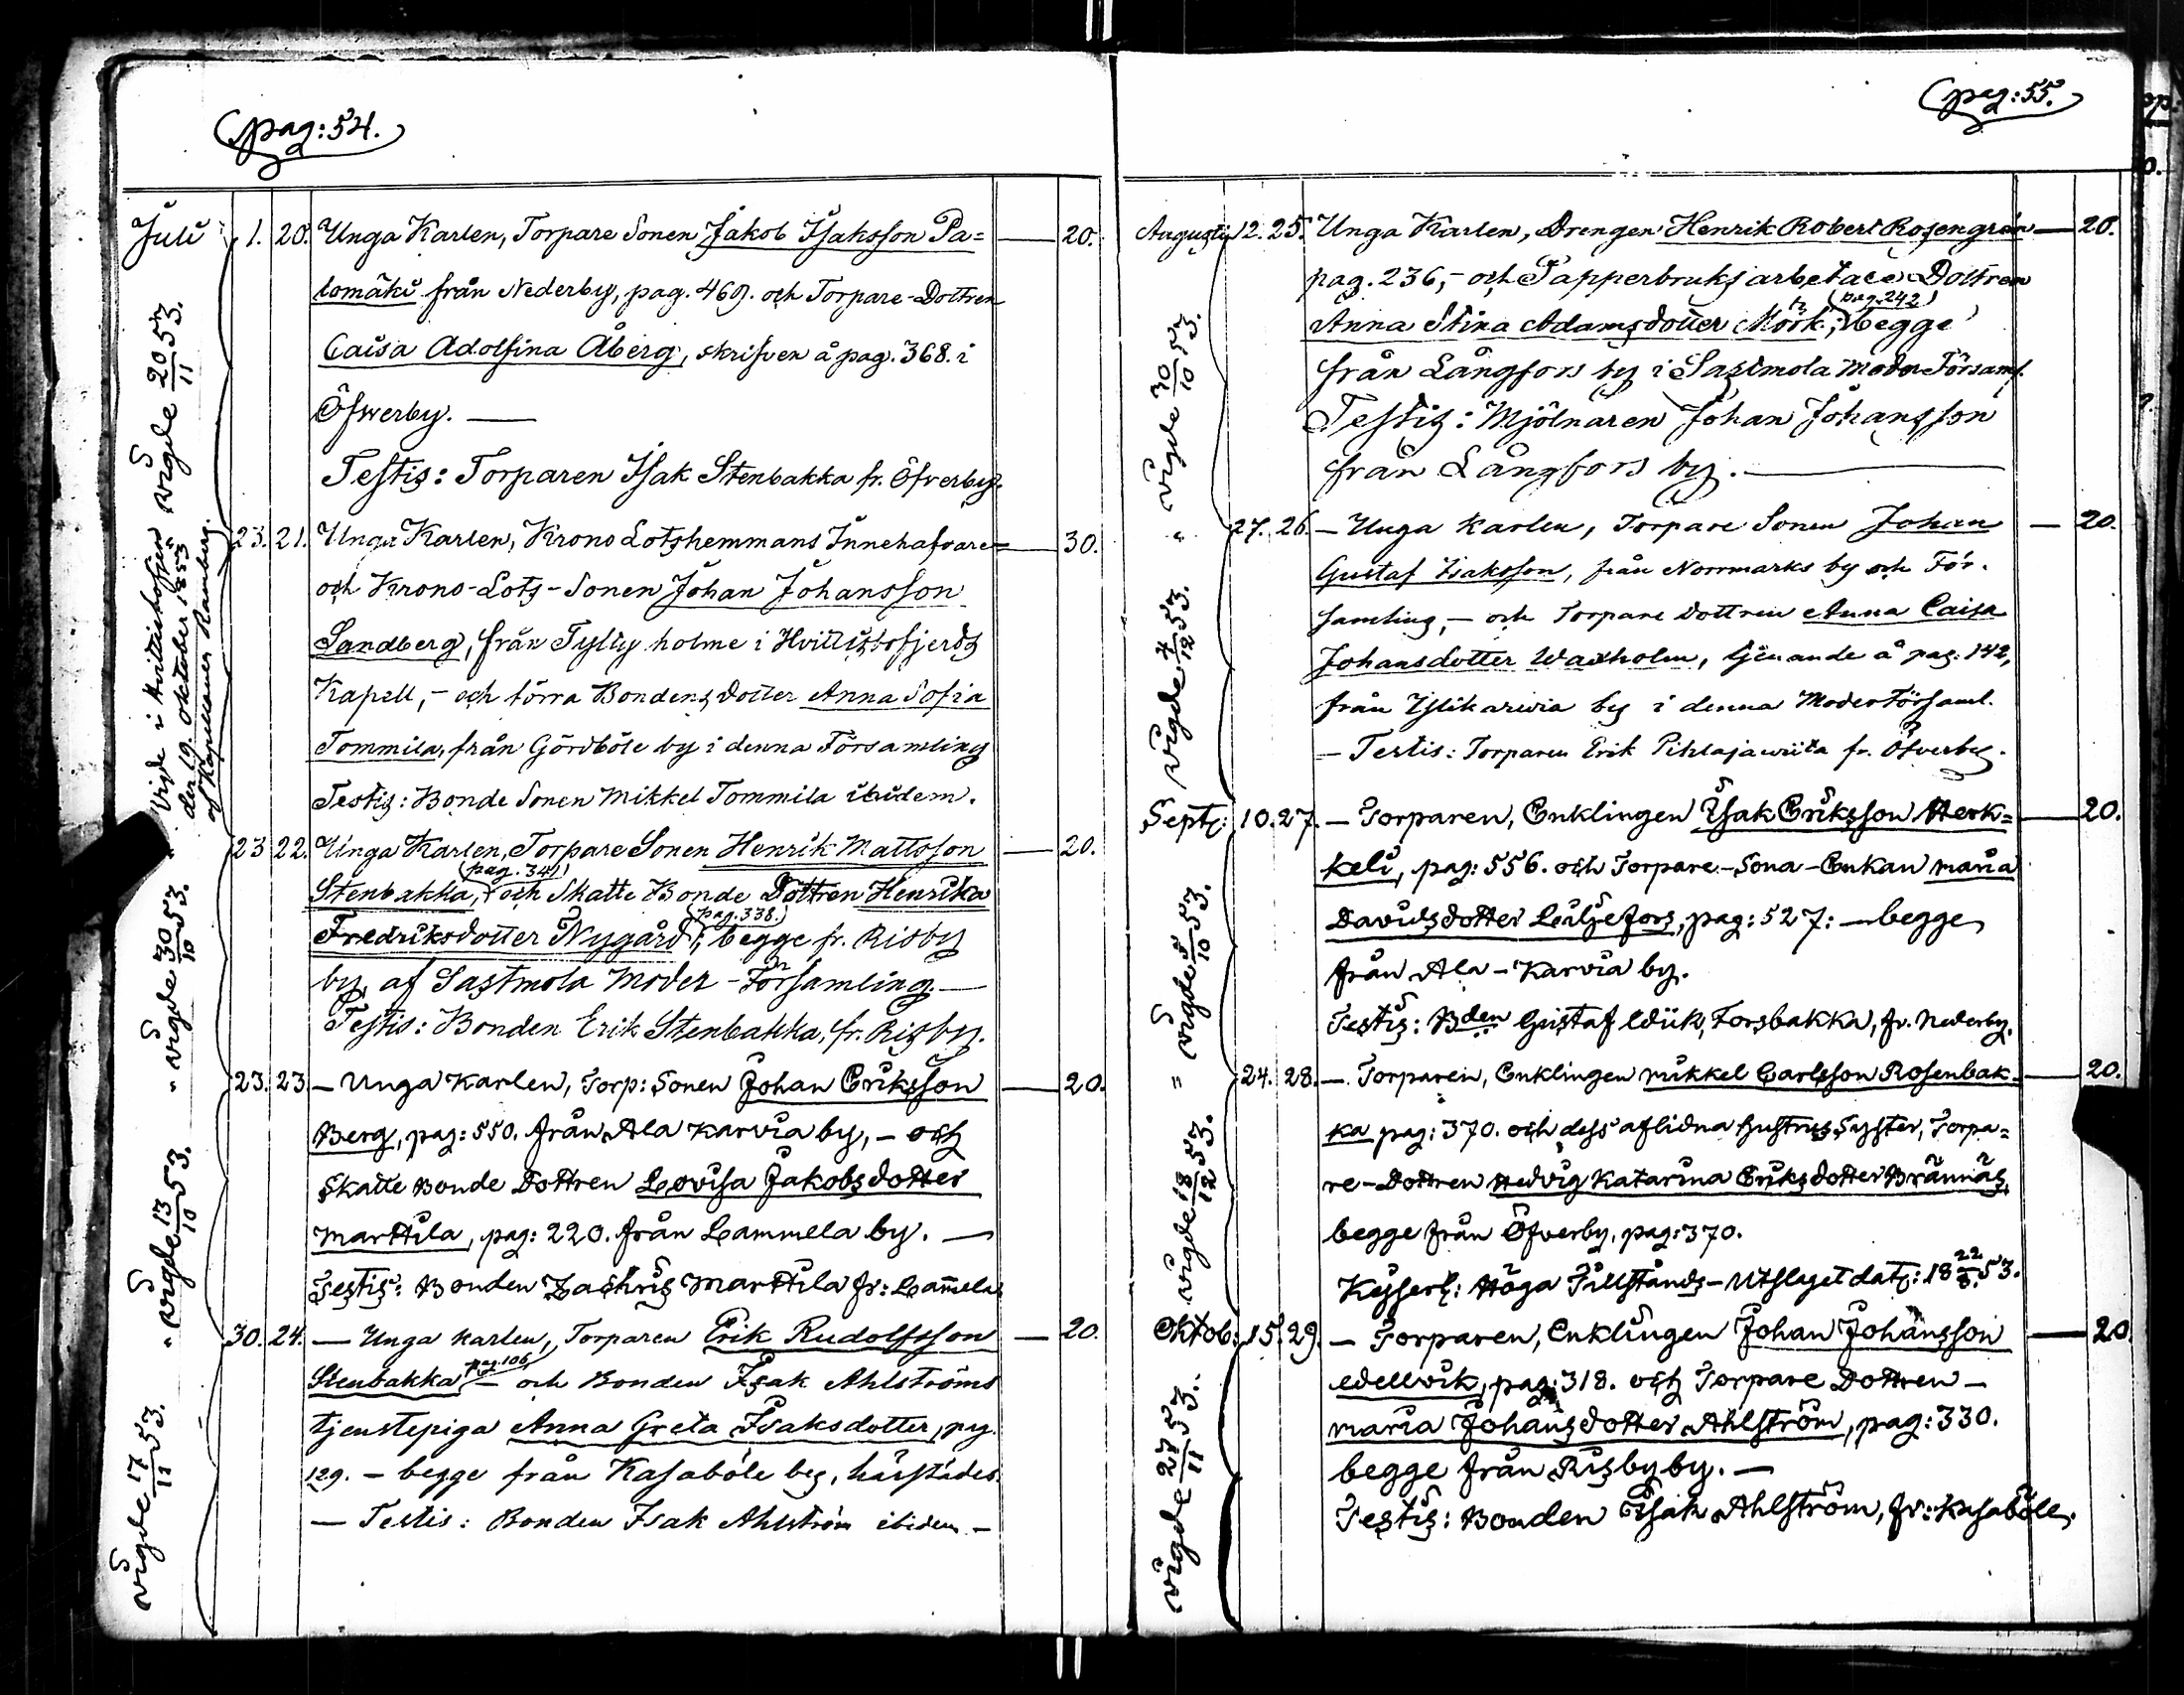 pag: 54.
Juli 1. 20. Unga Karlen, Torpare Sonen Jakob Isaksson Pa= — 20.
lomäki från Nederby, pag. 469. och Torpare-Dottren
Caisa Adolfina Åberg, skrifven å pag. 368. i
Öfwerby. —
Testis: Torparen Isak Stenbakka fr. Öfverby.
vigde 20/11 53.
23. 21. Unga Karlen, Krono Lotshemmans Innehafvare= — 30.
och Krono-Lots-Sonen Johan Johansson
Sandberg, från Tylty holme i Hvittisbofjerds
Kapell, - och förra Bondens dotter Anna Sofia
Tommila, från Gördböle by i denna Församling
Testis: Bonde Sonen Mikkel Tommila ibidem.
Vigde i Hvittisbofjerd
den 19. Oktober 1853
af Kapellanen Ramberg.
23 22. Unga Karlen, Torpare Sonen Henrik Mattsson — 20.
(pag. 341)
Stenbakka, och Skatte Bonde Dottren Henrika
(pag. 338.)
Fredriksdotter Nygård; begge fr. Risby
by, af Sastmola Moder-Församling. —
Testis: Bonden Erik Stenbakka, fr. Risby.
" vigde 30/10 53.
23. 23 — Unga Karlen, Torp: Sonen Johan Eriksson — 20.
Berg, pag: 550. från Ala Karvia by, - och
Skatte Bonde Dottren Lovisa Jakobsdotter
Marttila, pag: 220. från Lammela by. —
Testis: Bonden Zachris Marttila fr: Lam̄ela
" vigde 13/10 53.
30. 24. — Unga karlen, Torparen Erik Rudolfsson — 20.
pag. 106
Stenbakka — och Bonden Isak Ahlströms
tjenstepiga Anna Greta Isaksdotter, pag.
129. — begge från Kasaböle by, härstädes.
— Testis: Bonden Isak Ahlström ibidem. —
vigde 17/11 53.
pag: 55.
Augusti 12. 25. Unga Karlen, Drengen Henrik Robert Rosengrén — 20.
pag. 236, - och Papperbruksarbetare Dottren
(pag. 242)
Anna Stina Adamsdotter Mörk; begge
från Långfors by i Sastmola Moder Församl.
Testis: Mjölnaren Johan Johansson
från Långfors by. —
" vigde 30/10 53.
27. 26. — Unga karlen, Torpare Sonen Johan — 20.
Gustaf Isaksson, från Norrmarks by och För-
samling, — och Torpare dottren Anna Caisa
Johansdotter Waxholm, tjenande å pag. 142,
från Ylikarvia by i denna Moderförsaml.
— Testis: Torparen Erik Pihlajawiita fr. Öfverby.
vigde 4/12 53.
Sept: 10. 27. — Torparen, Enklingen Isak Eriksson Herk= — 20.
keli, pag: 556. och Torpare-Sona-Enkan Maria
Davidsdotter Leljefors, pag: 527: — begge
från Ala-Karvia by.
Testis: Bden Gustaf Wiik, Forsbakka, fr. Nederby.
= vigde 5/10 53.
24. 28. — Torparen, Enklingen Mikkel Carlsson Rosenbak- — 20.
ka pag: 370. och dess aflidna hustrus Syster, Torpa=
re-Dottren Hedvig Katarina Eriksdotter Brännäs,
begge från Öfverby, pag: 370.
Kejserl: Höga Tillstånds-Utslaget dat: 18 22/8. 53.
vigde 18/12 53.
Oktob: 15. 29. — Torparen, Enklingen Johan Johansson — 20
Wellvik, pag: 318. och Torpare Dottren —
Maria Johansdotter Ahlström, pag: 330.
begge från Risby by. —
Testis: Bonden Isak Ahlström, fr: Kasaböle.
vigde 27/11 53.